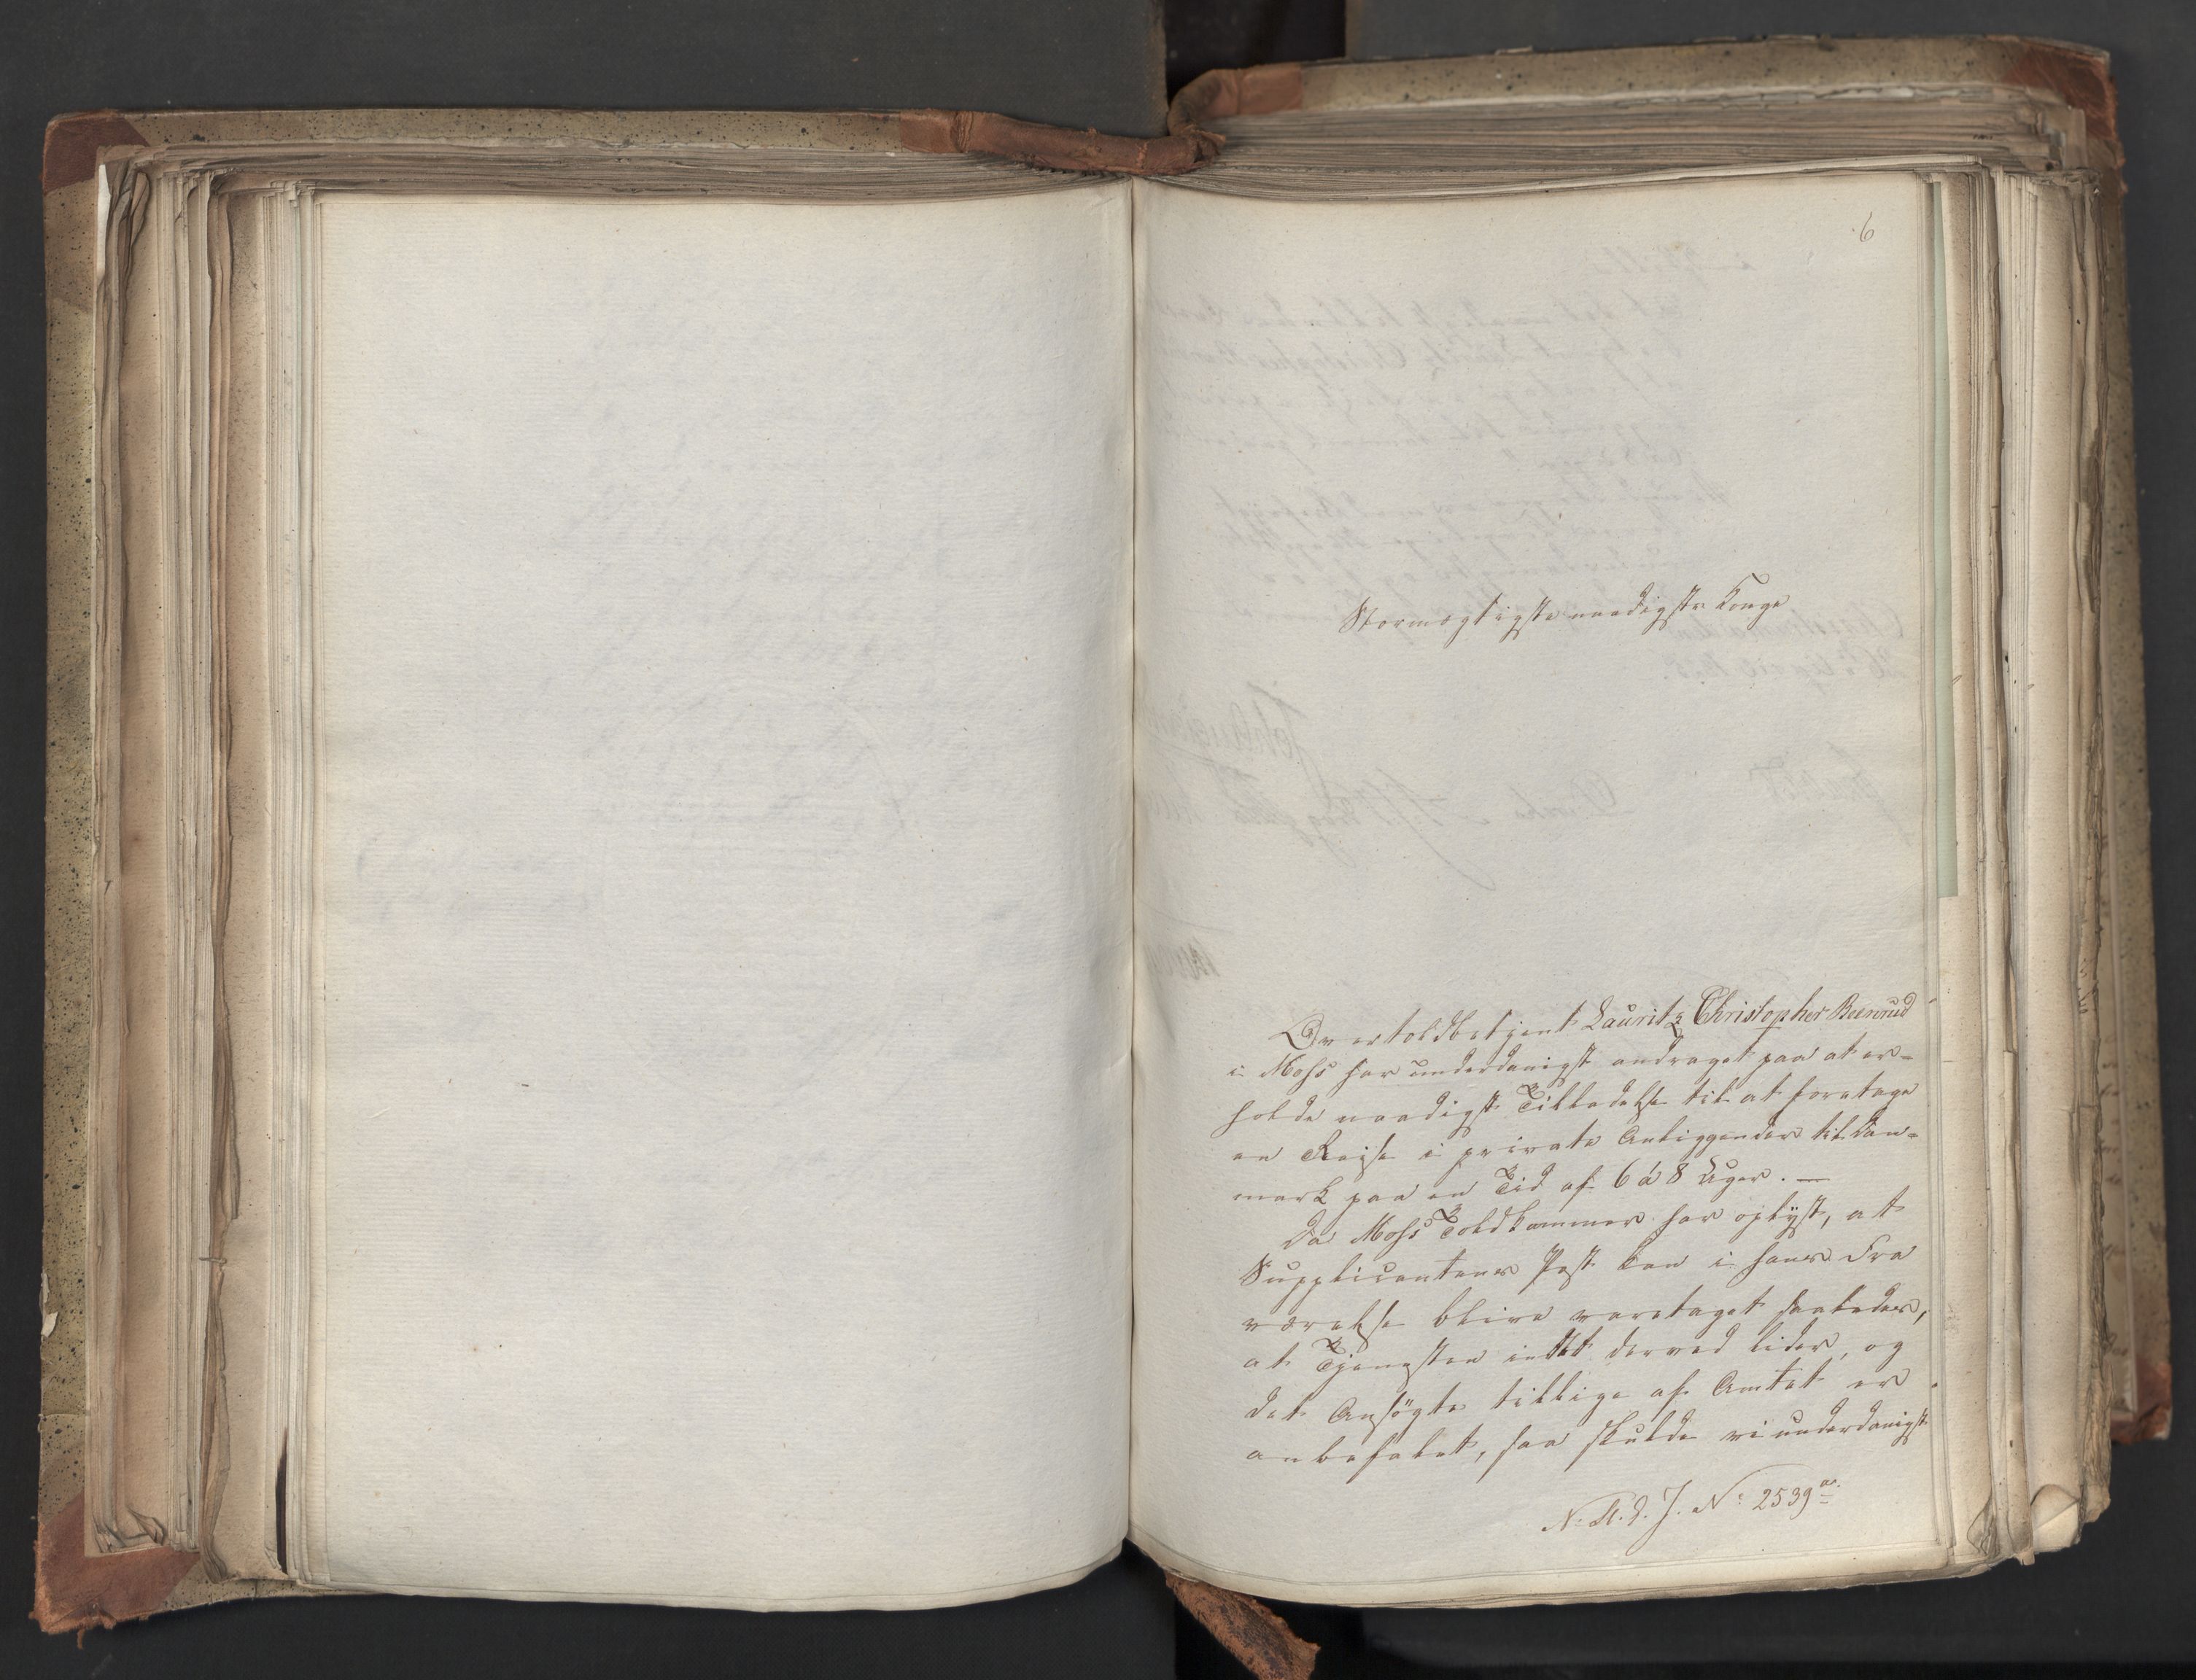 6
Stormægtigste naadigste Konge
Overtoldbetjent Lauritz Christopher Beenrud
i Moss har underdanigst andraget paa at er-
holde naadigst Tilladelse til at foretage
en Reise i private Anliggender til Dan-
mark paa en Tid af 6 á 8 Uger. —
Da Moss Toldkammer har oplyst, at
Supplicantens Post kan i hans Fra
værelse blive varetaget saaledes,
at Tjenesten intet derved lider, og
det Ansøgte tillige af Amtet er
anbefalet, saa skulde vi underdanigst
N: R. d. J. N: 2539 a.